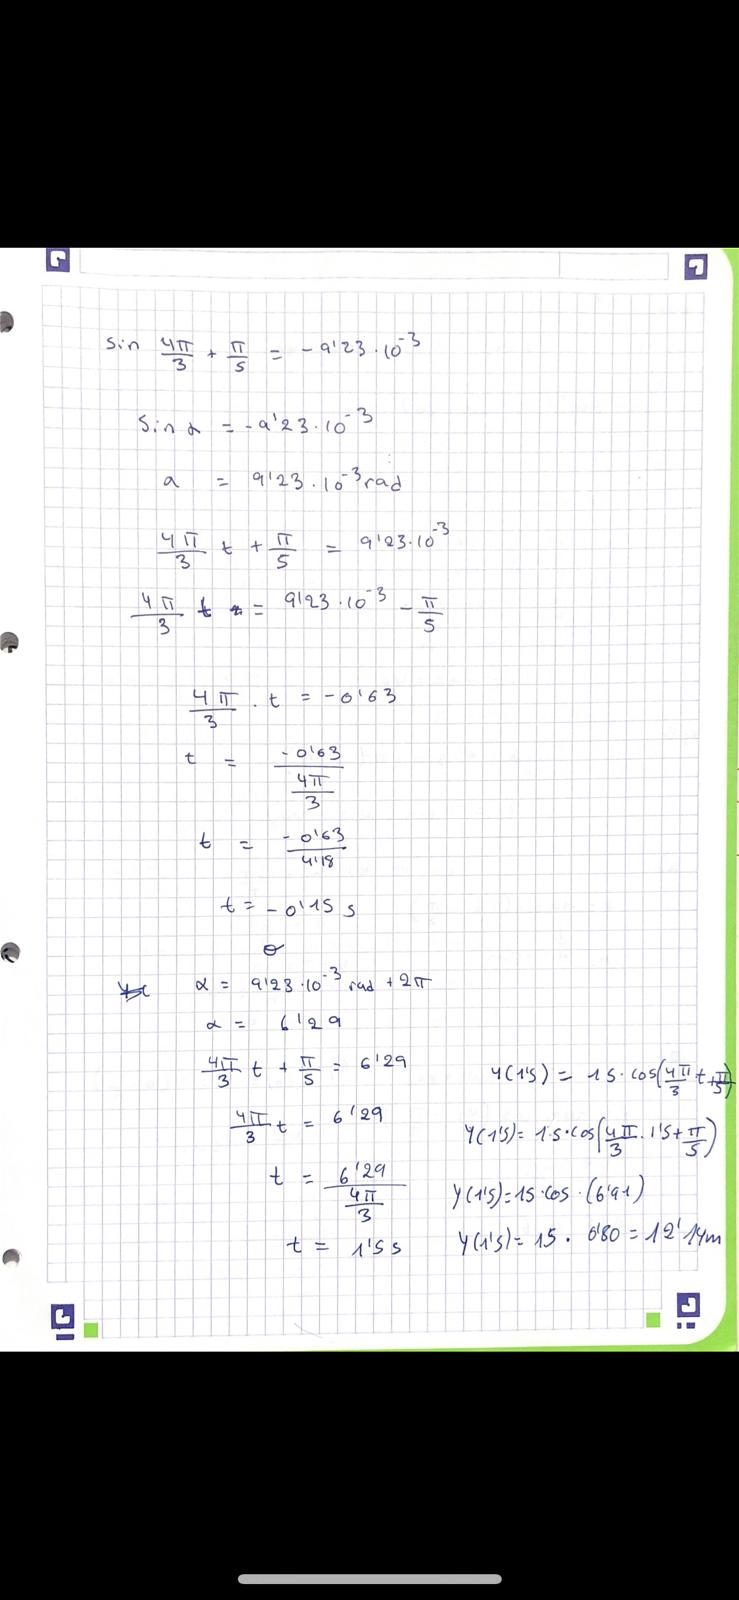 sin 4π/3 + π/5 = -9'23·10^-3
sin α = -9'23·10^-3
a = 9'23·10^-3 rad
4π/3 t + π/5 = 9'23·10^-3
4π/3 t = 9'23·10^-3 - π/5
4π/3 · t = -0'63
t = -0'63 / (4π/3)
t = -0'63 / 4'18
t = -0'15 s
o
α = 9'23·10^-3 rad + 2π
α = 6'29
4π/3 t + π/5 = 6'29
4π/3 t = 6'29
t = 6'29 / (4π/3)
t = 1'5 s
y(1'5) = 15·cos(4π/3 t + π/5)
y(1'5) = 15·cos(4π/3 · 1'5 + π/5)
y(1'5) = 15·cos·(6'91)
y(1'5) = 15 · 0'80 = 12'14m